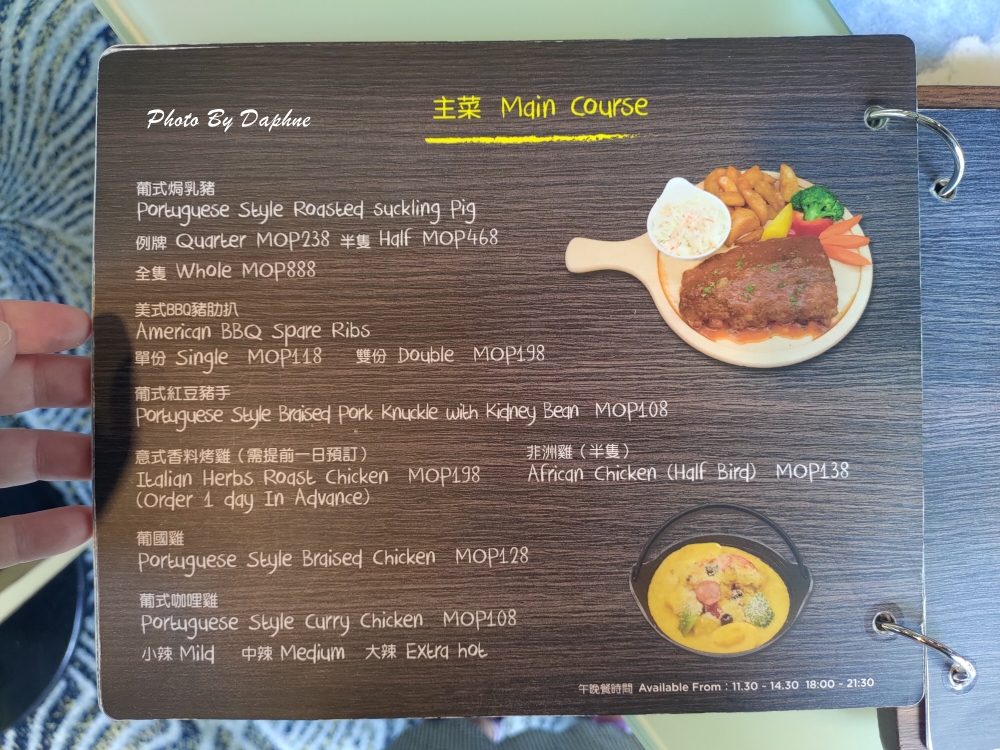 Photo By Daphne
主菜 Main Course
葡式焗乳豬
Portuguese Style Roasted Suckling Pig
例牌 Quarter MOP238 半隻 Half MOP468
全隻 Whole MOP888
美式BBQ豬肋扒
American BBQ Spare Ribs
單份 Single MOP118 雙份 Double MOP198
葡式紅豆豬手
Portuguese Style Braised Pork Knuckle with Kidney Bean MOP108
意式香料烤雞（需提前一日預訂）
Italian Herbs Roast Chicken MOP198
(Order 1 day In Advance)
非洲雞（半隻）
African Chicken (Half Bird) MOP138
葡國雞
Portuguese Style Braised Chicken MOP128
葡式咖哩雞
Portuguese Style Curry Chicken MOP108
小辣 Mild 中辣 Medium 大辣 Extra hot
午晚餐時間 Available From : 11.30 - 14.30 18:00 - 21:30